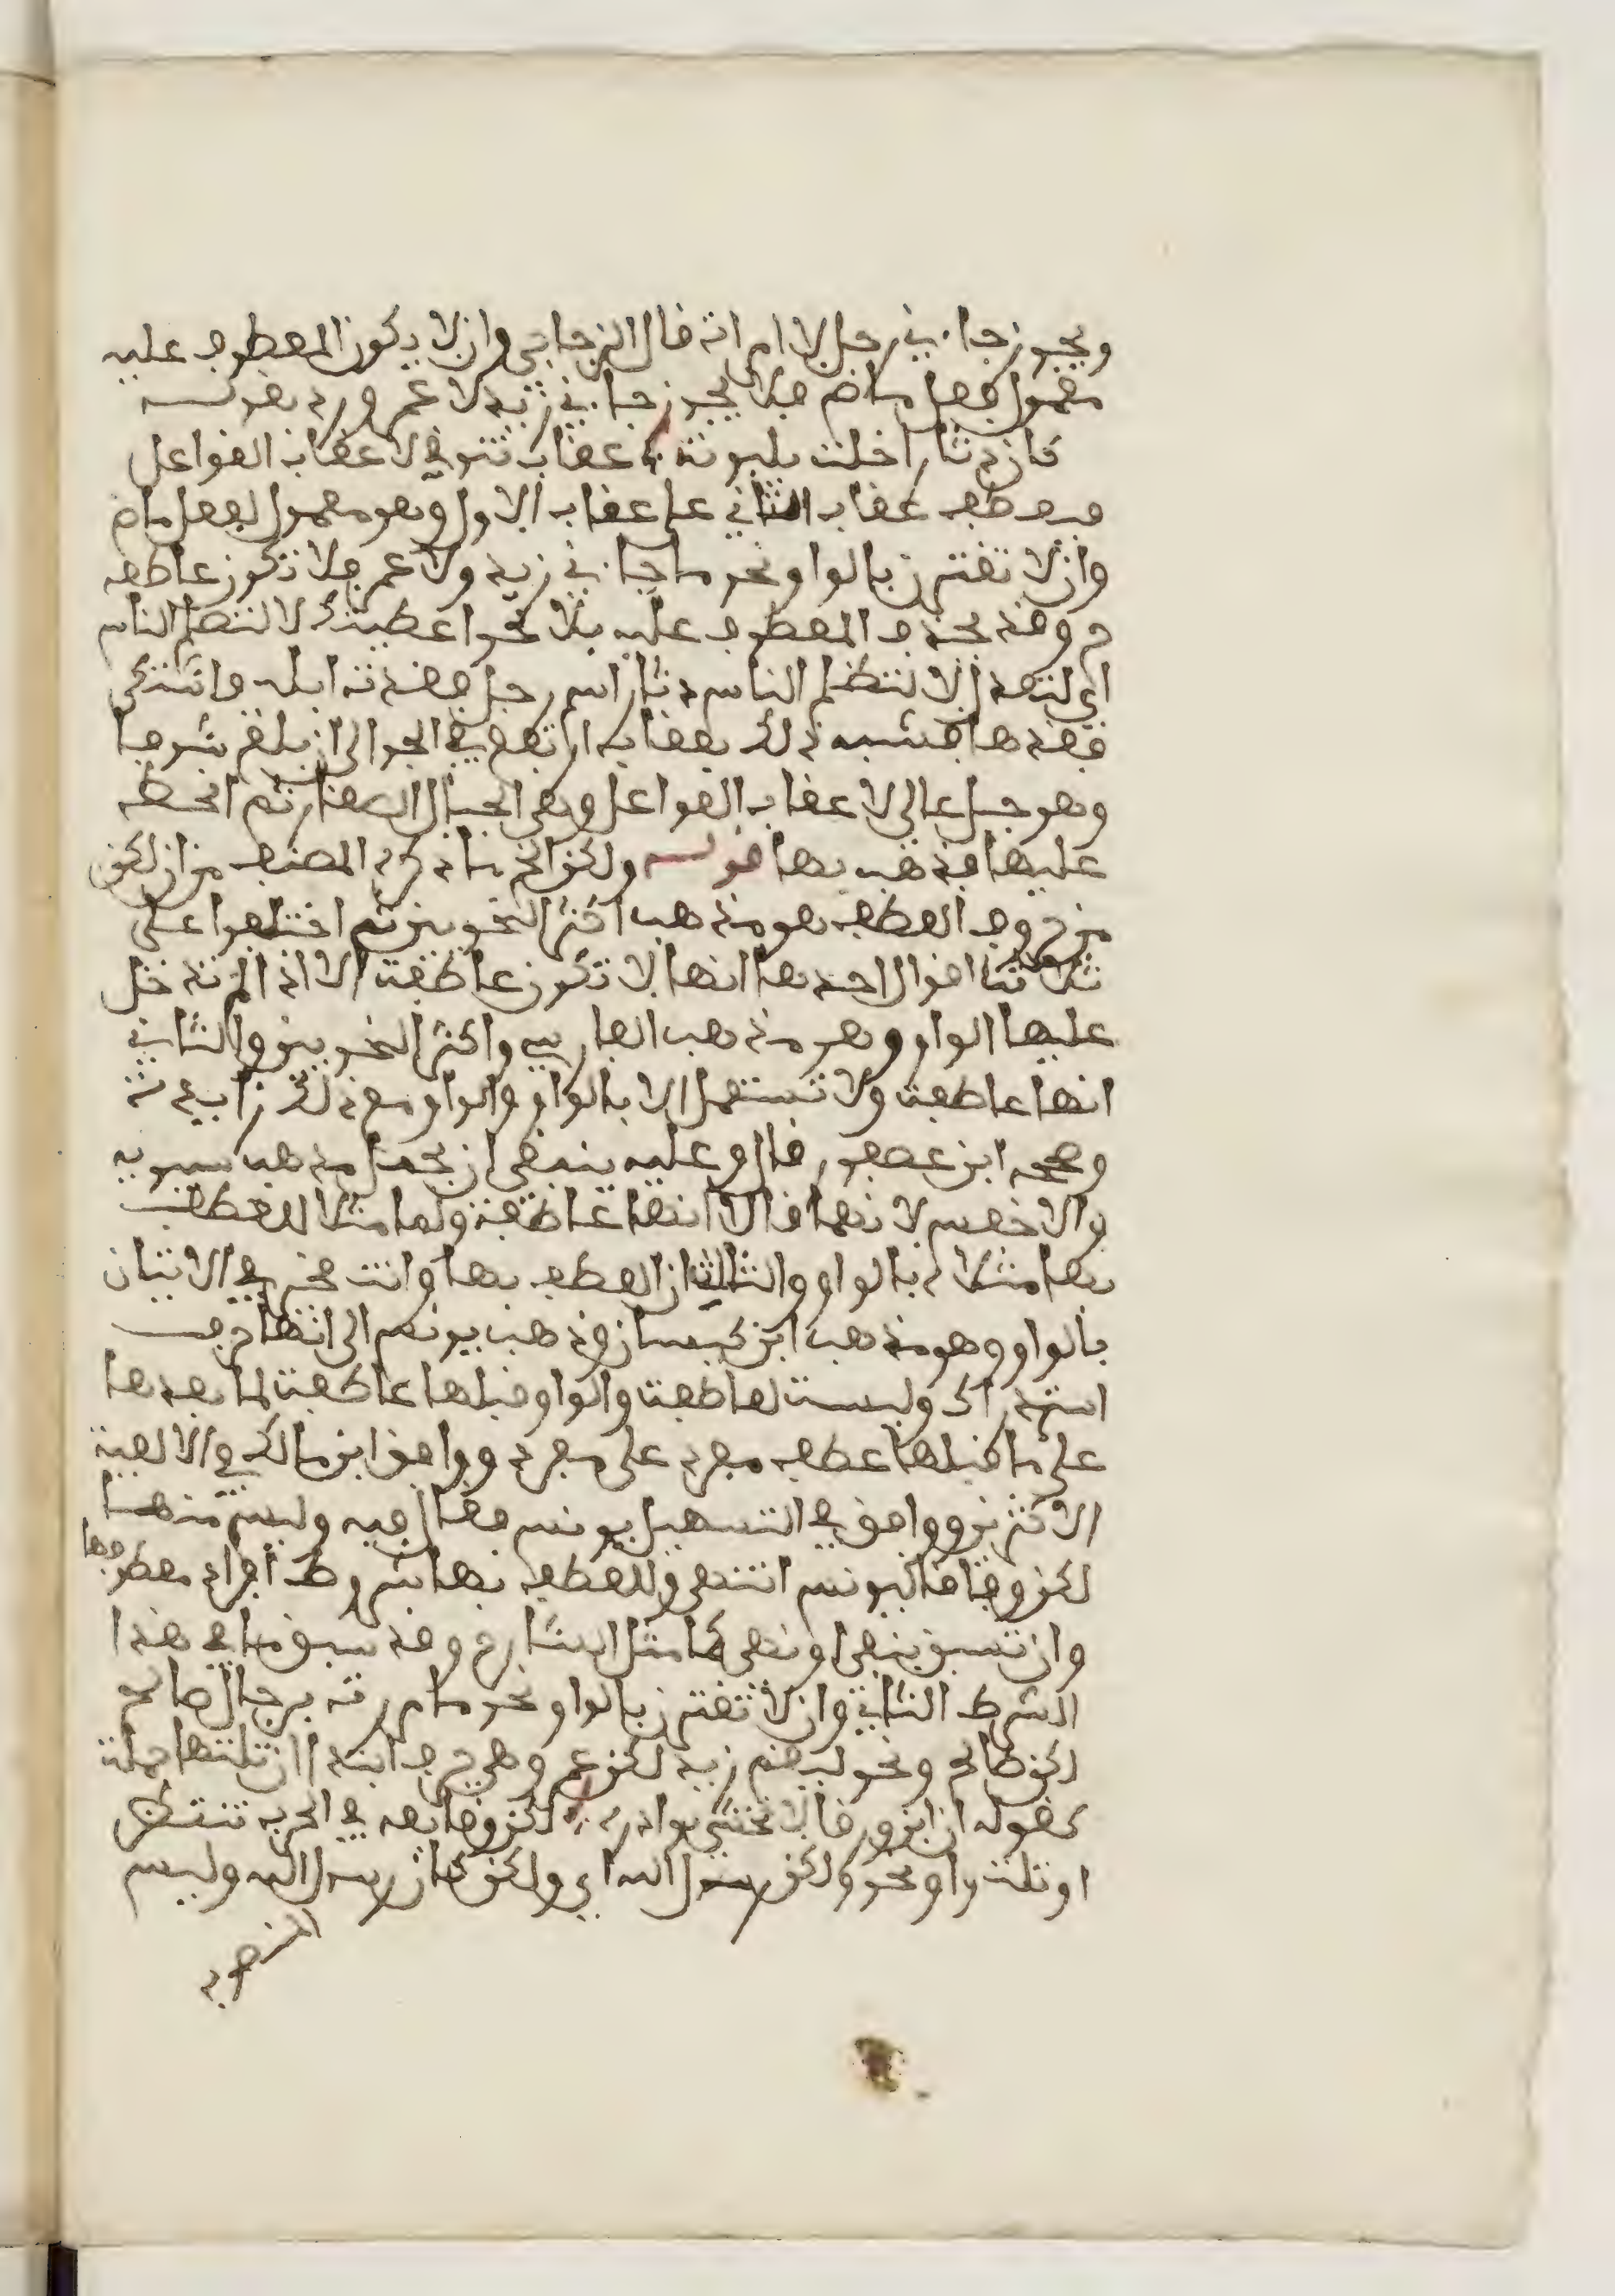 ويجوز جاءني رجل لا امراته قال الزجاجي وان لا يكون المعطوف عليه
معمول فعل ماض فلا يجوز جاءني زيد لا عمرو ورد بقولـــه
كان دثارا حلقت بلبونه ؞ عقاب تنوفي لا عقاب القواعل
فعطف عقاب الثاني على عقاب الاول وهو معمول لفعل ماض
وان لا تقترن بالواو نحو ما جاءني زيد ولا عمر فلا تكون عاطفه
وقد يحذف المعطوف عليه بلا نحو اعطيتك لا لتظلم الناس
اي لتعدل لا لتظلم الناس دثار اسم رجل فقدت ابله واشتكى
فقدها فشبه ذلك بعقاب ارتفع في الجو الى ان بلغ شوفا
وهو جبل عالي لا عقاب القواعل وهي الجبال الصغار ثم انحطه
عليها فذهب بها قولـــه ولكن الخ ما ذكره المصنف من ان لكن
من حروف العطف هو مذهب اكثر النحويين ثم اختلفوا على
ثلاثة اقوال احدها انها لا تكون عاطفة الا اذا لم تدخل
عليها الواو وهو مذهب الفارسي واكثر النحويين والثاني
انها عاطفة ولا تستعمل الا بالواو والواو مع ذلك زايدة
وصححه ابن عصفور قال وعليه ينبغي ان يحمل مذهب سيبويه
والاخفش لانهما قالا انها عاطفة ولما مثلا للعطف
بها مثلاه بالواو والثالث ان العطف بها وانت مخير في الاتيان
بالواو وهو مذهب ابن كيسان وذهب يونس الى انها حرف
استدراك وليست لعاطفة والواو قبلها عاطفة لما بعدها
على ما قبلها عطف مفرد على مفرد ووافق ابن مالك في الالفية
الاكثرين ووافق في التسهيل يونس فقال فيه وليس منها
لكن وفاقا ليونس انتهى وللعطف بها شروط افراد معطوفها
وان تسبق بنفي او نهي كما مثل الشارح وقد سبق ما في هذا
الشرط الثاني وان لا تقترن بالواو نحو ما مررت برجال صالح
لكن طالح ونحو ليقم زيد لكن عمر وهي حرف ابتدا ان تلتها جملة
كقوله ان ابن ورقا لا تخشى بوادره ؞ لكن وقائعه في الحرب تنتظر
او تلت واو نحو ولكن رسول الله اي ولكن كان رسول الله وليس